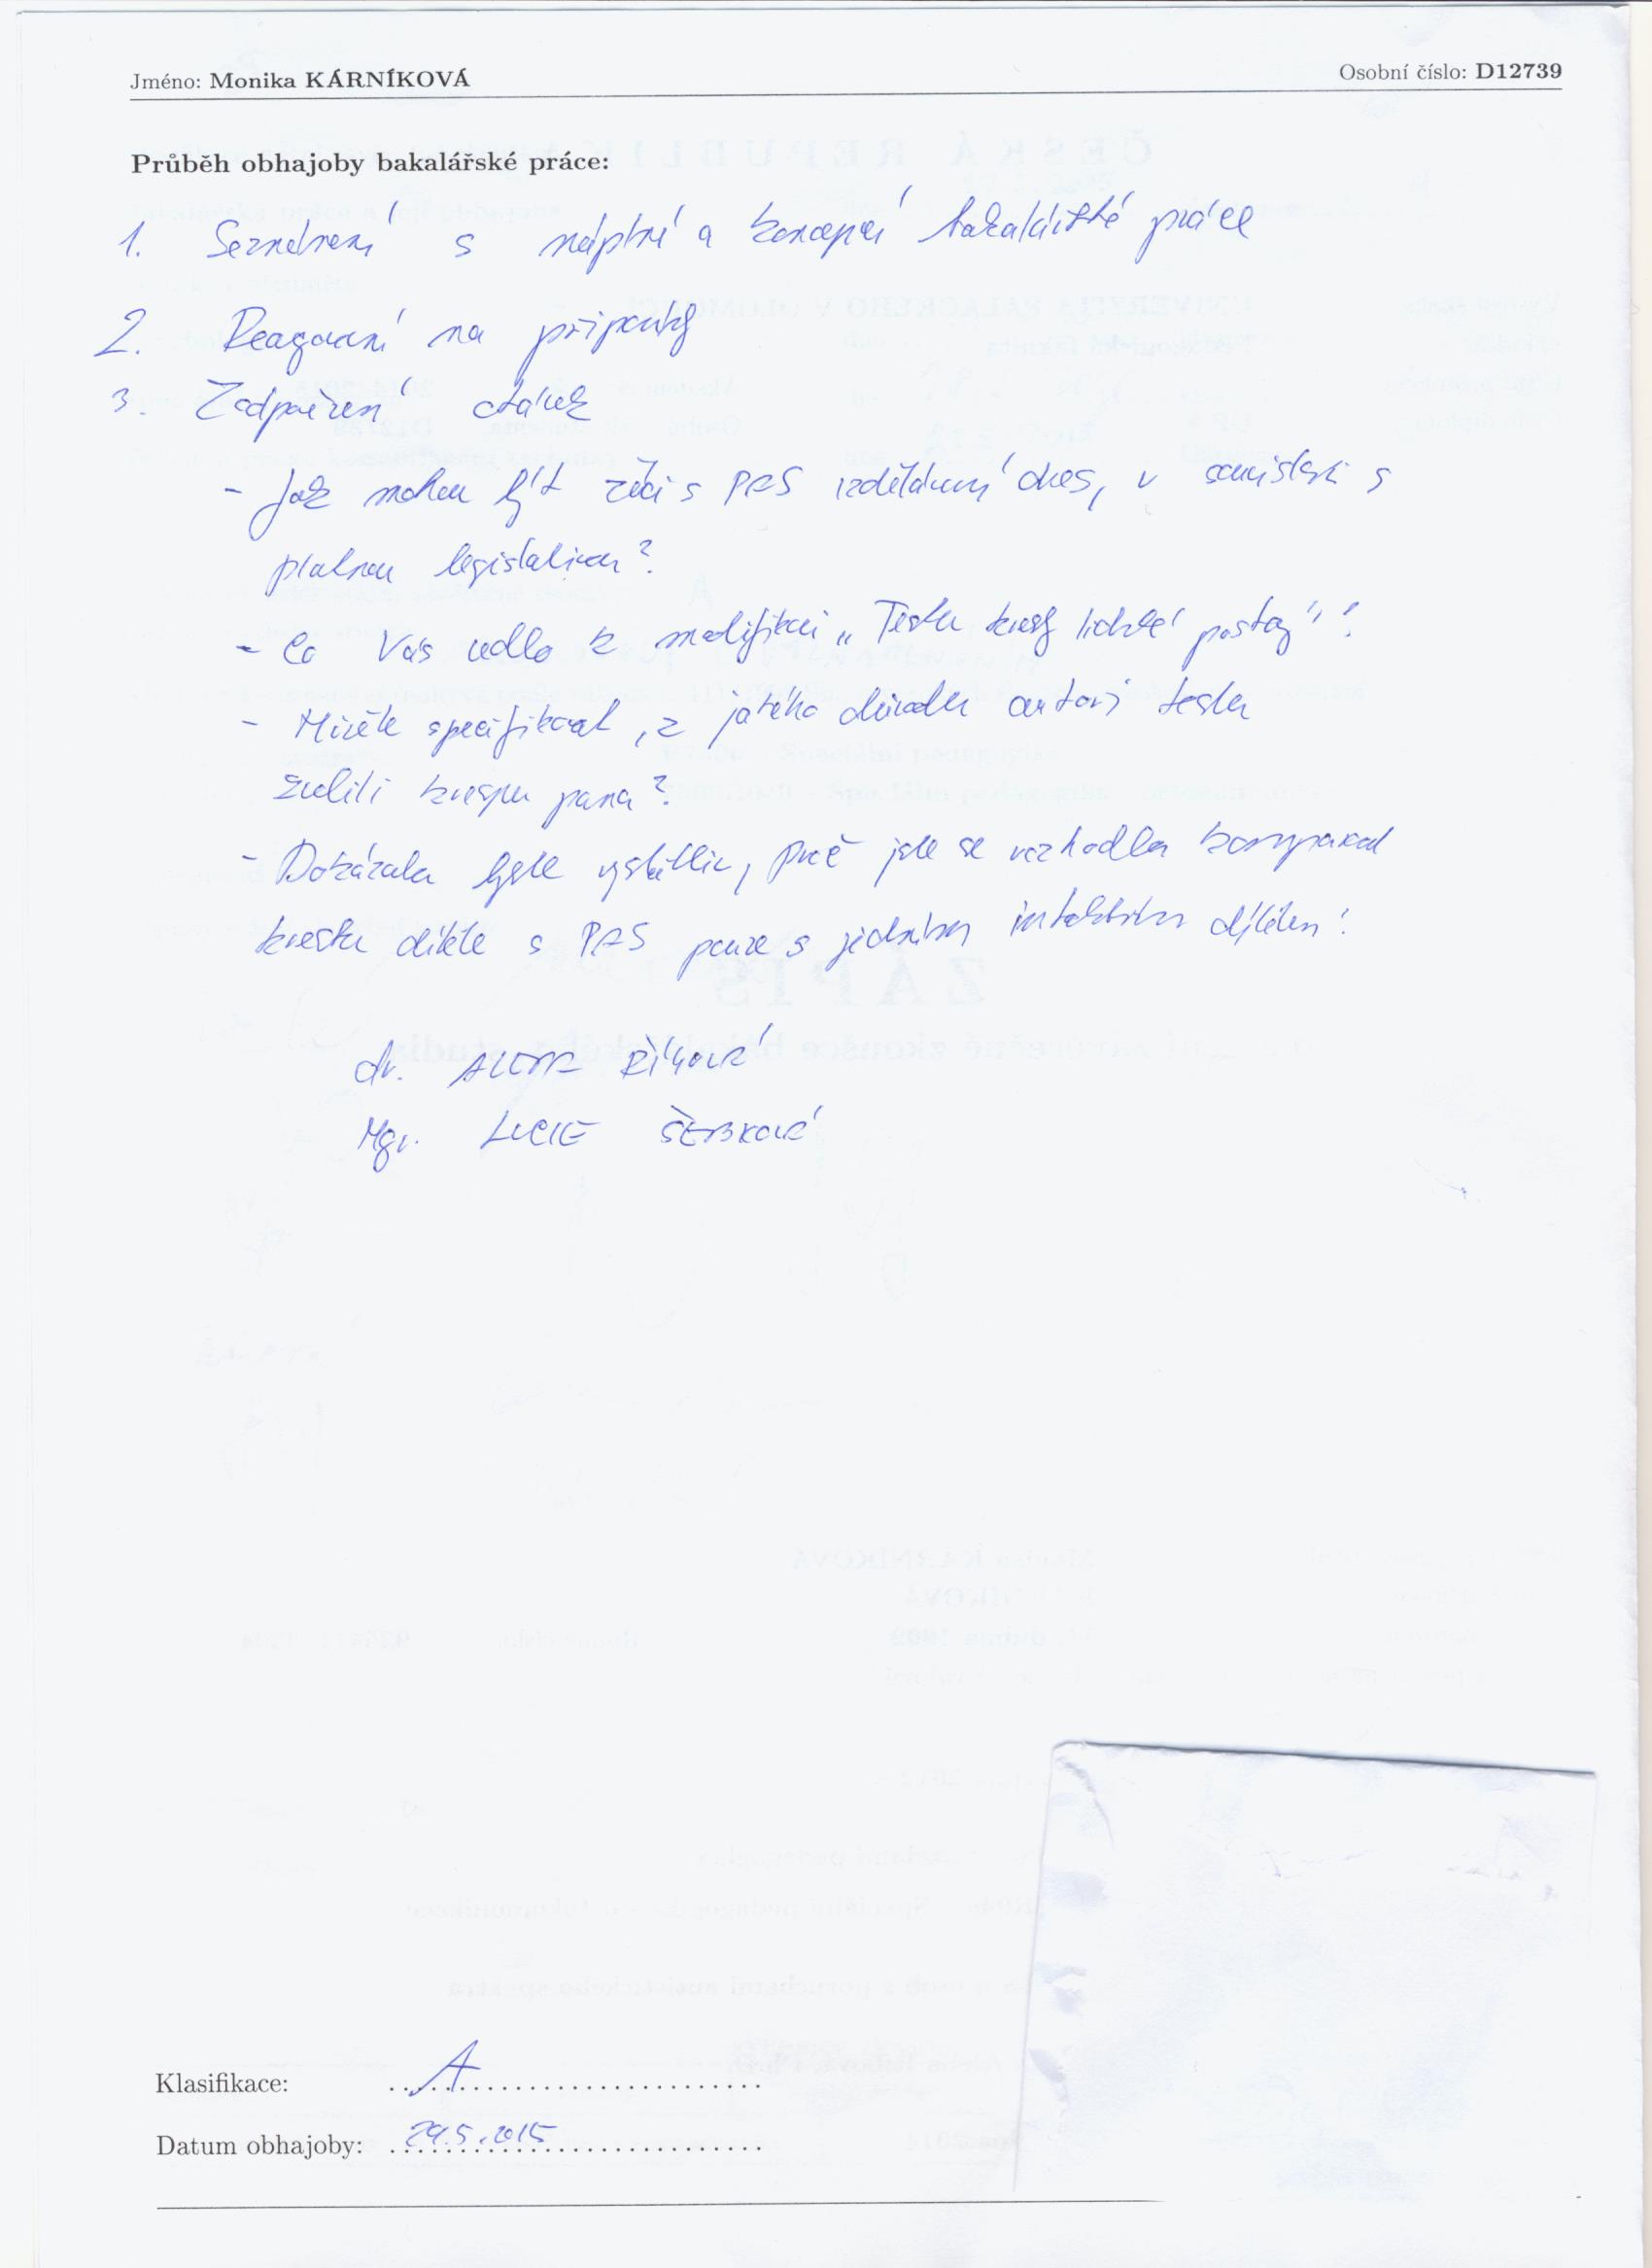 Jméno: Monika KÁRNÍKOVÁ
Osobní číslo: D12739
Průběh obhajoby bakalářské práce:
1. Seznámení s náplní a koncepcí bakalářské práce
2. Reagování na připomínky
3. Zodpovězení otázek
- Jak mohou být žáci s PAS vzděláváni dnes, v souvislosti s
platnou legislativou?
- Co Vás vedlo k modifikaci „Testu kresby lidské postavy"?
- Můžete specifikovat, z jakého důvodu autoři testu
zvolili kresbu pána?
- Dokázala byste vysvětlit, proč jste se rozhodla komparovat
kresbu dítěte s PAS pouze s jedním intaktním dítětem?
dr. ALENA ŘÍHOVÁ
Mgr. LUCIE
Klasifikace: A
Datum obhajoby: 29.5.2015